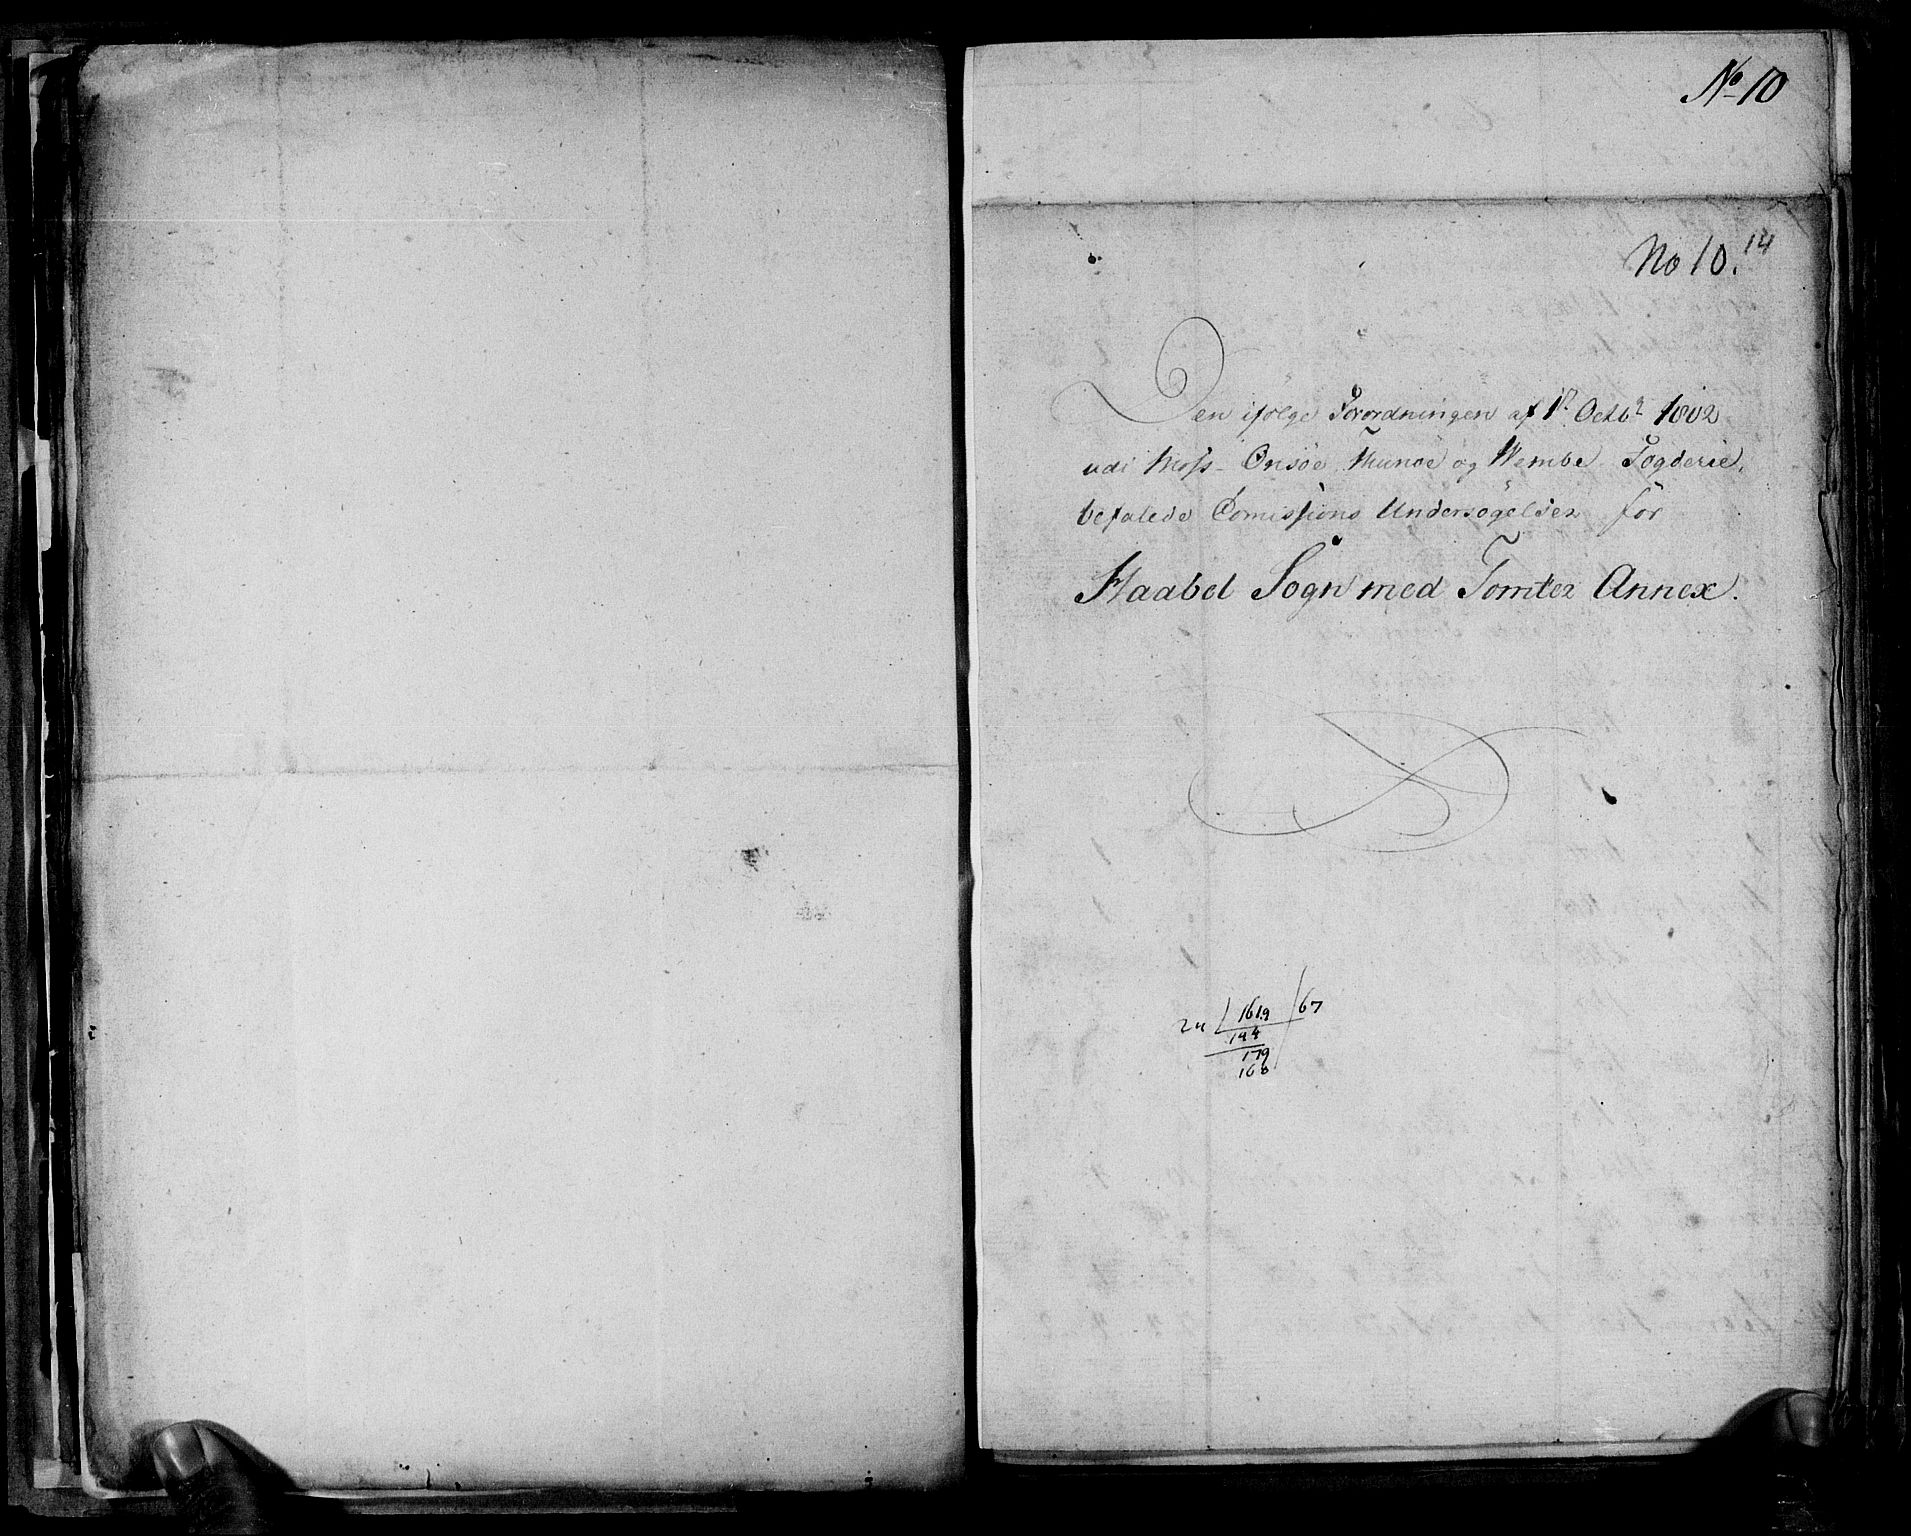 No 10
No 10. 14
Den ifølge Forordningen af 1ste Octbr 1802
udi Moss- Onsöe Thunöe og Wembe Fogderie,
befalede Comissions Undersøgelser for
Haabel Sogn med Tomter Annex.
24 1619 67
144
179
168